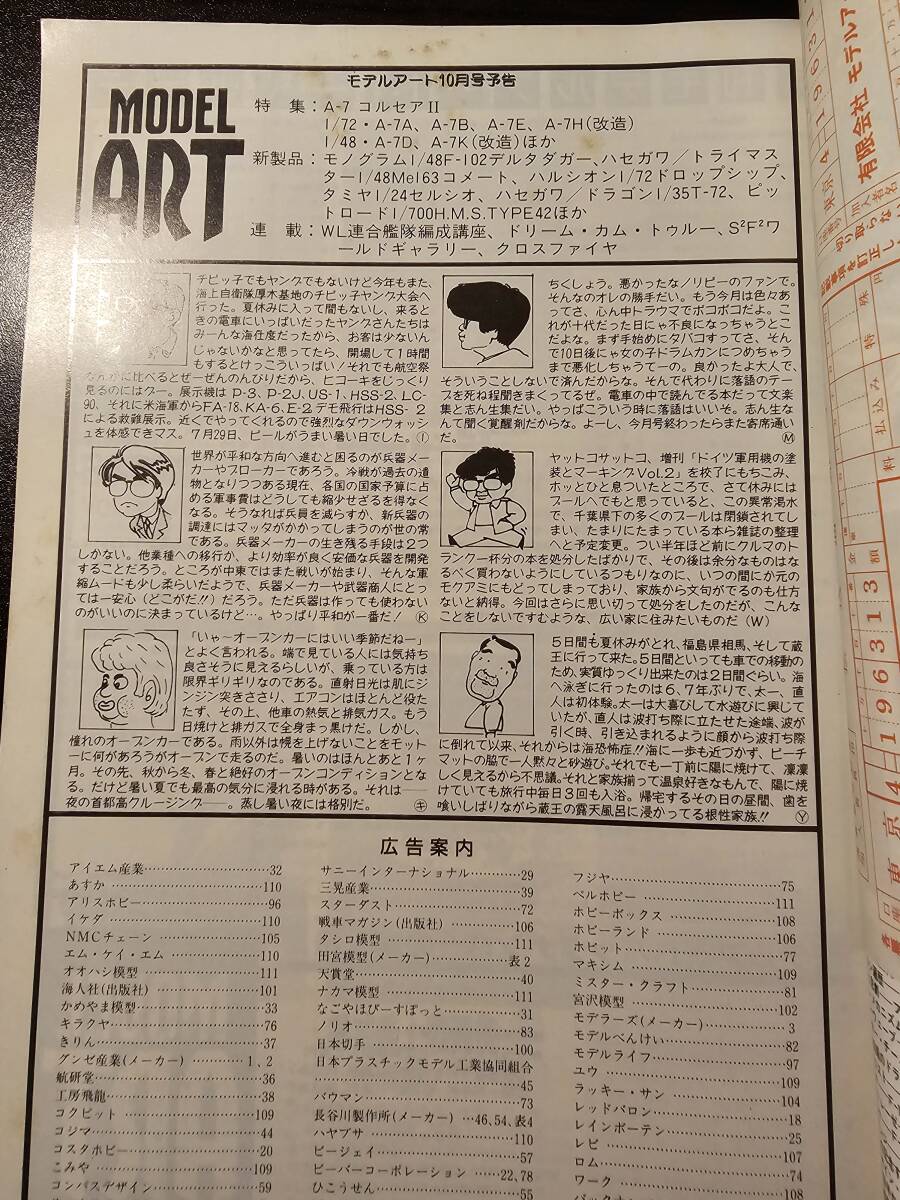 モデルアート10月号予告
MODEL
ART
特　集：A-7 コルセアII
1/72・A-7A、A-7B、A-7E、A-7H(改造)
1/48・A-7D、A-7K(改造)ほか
新製品：モノグラム1/48F-102デルタダガー、ハセガワ／トライマス
ター1/48Me163コメート、ハルシオン1/72ドロップシップ、
タミヤ1/24セルシオ、ハセガワ／ドラゴン1/35T-72、ピッ
トロード1/700H.M.S.TYPE42ほか
連　載：WL連合艦隊編成講座、ドリーム・カム・トゥルー、S²F²ワ
ールドギャラリー、クロスファイヤ
チビッ子でもヤングでもないけど今年もまた、
海上自衛隊厚木基地のチビッ子ヤング大会へ
行った。夏休みに入って間もないし、来ると
きの電車にいっぱいだったヤングさんたちは
みーんな海任度だったから、お客は少ないん
じゃないかなと思ってたら、開場して1時間
もするとけっこういっぱい！それでも航空祭
なんかに比べるとぜーぜんのんびりだから、ヒコーキをじっくり
見るのにはグー。展示機は P-3、P-2J、US-1、HSS-2、LC-
90、それに米海軍からFA-18、KA-6、E-2 デモ飛行はHSS-2
による救難展示。近くでやってくれるので強烈なダウンウォッシ
ュを体感できマス。7月29日、ビールがうまい暑い日でした。Ⓘ
ちくしょう。悪かったなノリピーのファンで。
そんなのオレの勝手だい。もう今月は色々あ
ってさ、心ん中トラウマでボコボコだよ。こ
れが十代だった日にゃ不良になっちゃうとこ
だよな。まず手始めにタバコすってさ、そん
で10日後にゃ女の子ドラムカンにつめちゃう
まで悪化しちゃうてーの。良かったよ大人で、
そういうことしないで済んだからな。そんで代わりに落語のテー
プを死ね程聞きまくってるぜ。電車の中で読んでる本だって文楽
集と志ん生集だい。やっぱこういう時に落語はいいぞ。志ん生な
んて聞く覚醒剤だからな。よーし、今月号終わったらまた寄席通い
だ。Ⓜ
世界が平和な方向へ進むと困るのが兵器メー
カーやブローカーであろう。冷戦が過去の遺
物となりつつある現在、各国の国家予算に占
める軍事費はどうしても縮少せざるを得なく
なる。そうなれば兵員を減らすか、新兵器の
調達にはマッタがかかってしまうのが世の常
である。兵器メーカーの生き残る手段は2つ
しかない。他業種への移行か、より効率が良く安価な兵器を開発
することだろう。ところが中東ではまた戦いが始まり、そんな軍
縮ムードも少し柔らいだようで、兵器メーカーや武器商人にとっ
ては一安心（どこがだ!!）だろう。ただ兵器は作っても使わない
のがいいのに決まっているけど…。やっぱり平和が一番だ！Ⓚ
ヤットコサットコ、増刊「ドイツ軍用機の塗
装とマーキングVol.2」を校了にもちこみ、
ホッとひと息ついたところで、さて休みには
プールへでもと思っていると、この異常渇水
で、千葉県下の多くのプールは閉鎖されてし
まい、たまりにたまっている本ら雑誌の整理
へと予定変更。つい半年ほど前にクルマのト
ランク一杯分の本を処分したばかりで、その後は余分なものはな
るべく買わないようにしているつもりなのに、いつの間にか元の
モクアミにもどってしまっており、家族から文句がでるのも仕方
ないと納得。今回はさらに思い切って処分をしたのだが、こんな
ことをしないですむような、広い家に住みたいものだ（W）
「いゃ〜オープンカーにはいい季節だねー」
とよく言われる。端で見ている人には気持ち
良さそうに見えるらしいが、乗っている方は
限界ギリギリなのである。直射日光は肌にジ
ンジン突きささり、エアコンはほとんど役た
たず、その上、他車の熱気と排気ガス。もう
日焼けと排ガスで全身まっ黒けだ。しかし、
憧れのオープンカーである。雨以外は幌を上げないことをモット
ーに何があろうがオープンで走るのだ。暑いのはほんとあと1ヶ
月。その先、秋から冬、春と絶好のオープンコンディションとな
る。だけど暑い夏でも最高の気分に浸れる時がある。それは——
夜の首都高クルージング——。蒸し暑い夜には格別だ。㋖
5日間も夏休みがとれ、福島県相馬、そして蔵
王に行って来た。5日間といっても車での移動の
ため、実質ゆっくり出来たのは2日間ぐらい。海
へ泳ぎに行ったのは6、7年ぶりで、太一、直
人は初体験。太一は大喜びして水遊びに興じて
いたが、直人は波打ち際に立たせた途端、波が
引く時、引き込まれるように顔から波打ち際
に倒れて以来、それからは海恐怖症!!海に一歩も近づかず、ビーチ
マットの脇で一人黙々と砂遊び。それでも一丁前に陽に焼けて、凛凛
しく見えるから不思議。それと家族揃って温泉好きなもんで、陽に焼
けていても旅行中毎日3回も入浴。帰宅するその日の昼間、歯を
喰いしばりながら蔵王の露天風呂に浸かってる根性家族!! Ⓨ
広告案内
アイエム産業……32
あすか……110
アリスホビー……96
イケダ……110
NMCチェーン……105
エム・ケイ・エム……110
オオハシ模型……111
海人社(出版社)……101
かめやま模型……33
キラクヤ……76
きりん……37
グンゼ産業(メーカー)……1、2
航研堂……36
工房飛龍……38
コクピット……109
コジマ……44
コスタホビー……20
こみや……109
コンパスデザイン……59
サニーインターナショナル……29
三晃産業……39
スターダスト……72
戦車マガジン(出版社)……106
タシロ模型……111
田宮模型(メーカー)……表2
天賞堂……40
ナカマ模型……111
なごやほびーすぽっと……31
ノリオ……83
日本切手……100
日本プラスチックモデル工業協同組合
……45
バウマン……73
長谷川製作所(メーカー)…46、54、表4
ハヤブサ……110
ビージェイ……57
ビーバーコーポレーション……22、78
ひこうせん……55
フジヤ……75
ベルホビー……111
ホビーボックス……108
ホビーランド……106
ホビット……77
マキシム……109
ミスター・クラフト……81
宮沢模型……102
モデラーズ(メーカー)……3
モデルべんけい……82
モデルライフ……97
ユウ……109
ラッキー・サン……104
レッドバロン……18
レインボーテン……25
レピ……107
ロム……74
ワーク……108
東京4-19631
有限会社 モデルア
切り取らない
払込み
特
殊
料
金
額
196313
東京4